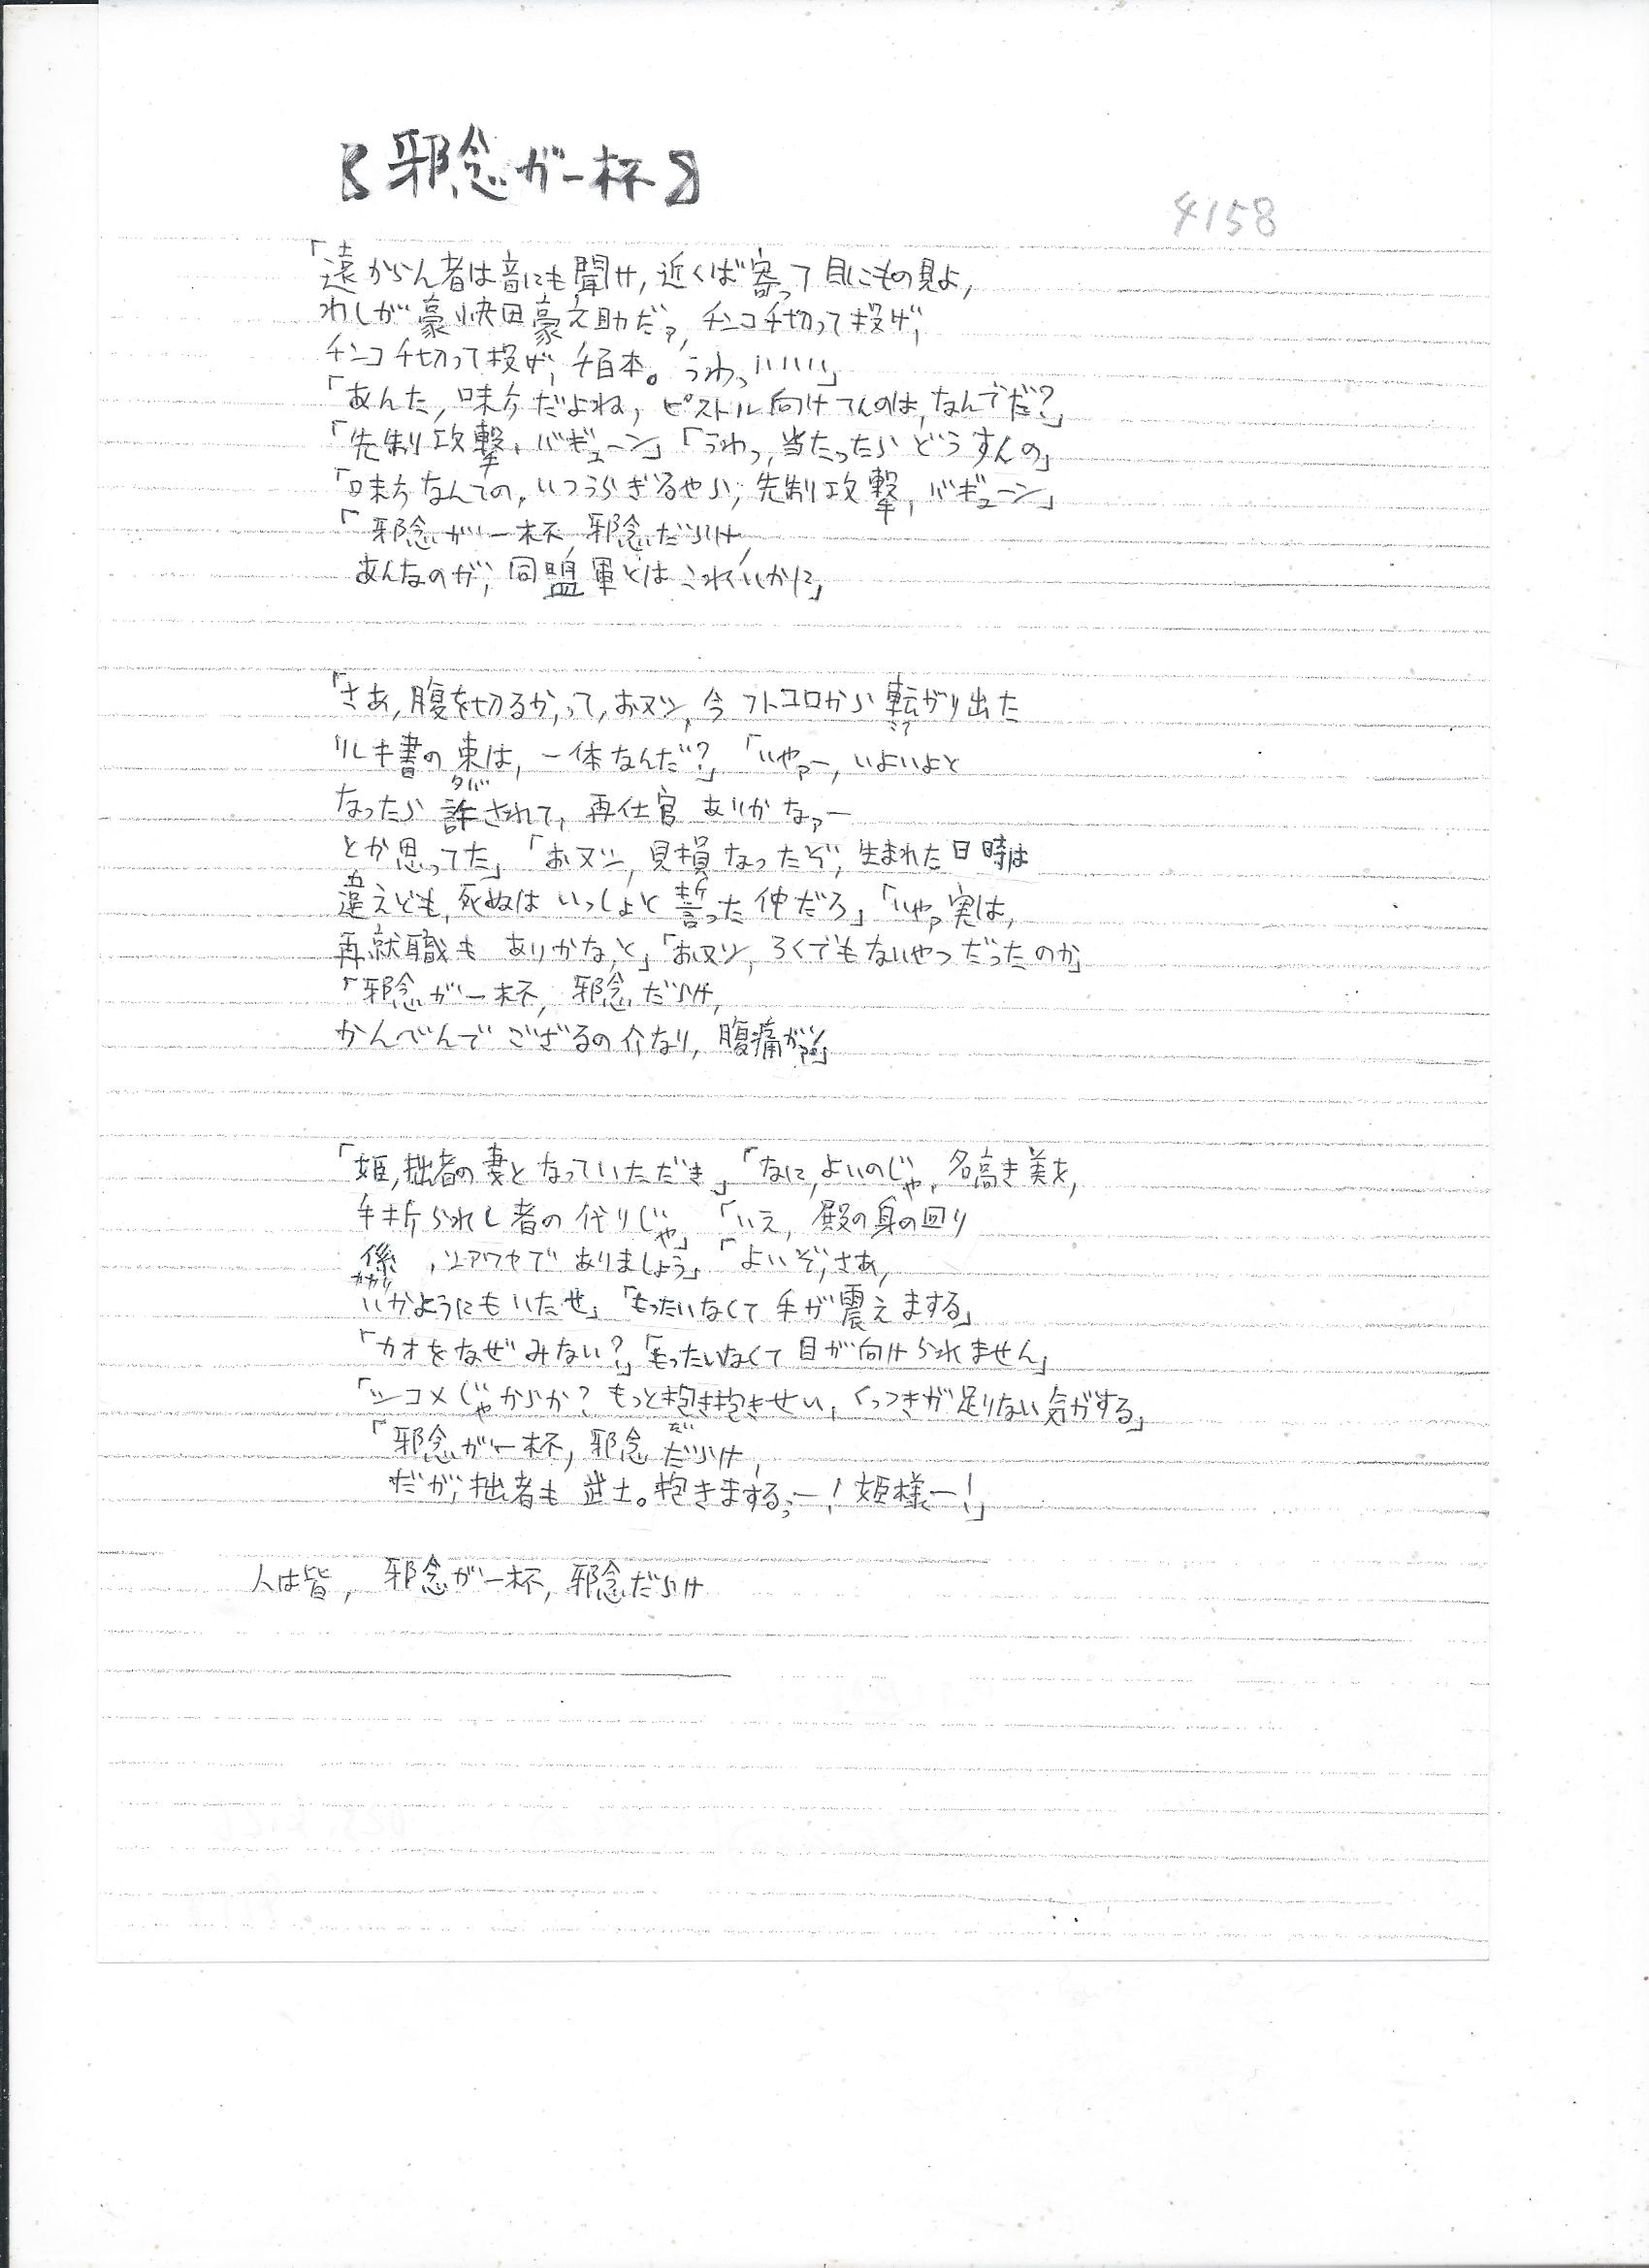 【邪念が一杯】
4158
「遠からん者は音にも聞け, 近くば寄って目にもの見よ,
わしが豪快田豪之助だァ, チンコ千切って投げ,
チンコ千切って投げ, 千百本。うわっ!!!!!」
「あんた, 味方だよね, ピストル向けてんのは, なんでだ?」
「先制攻撃, バギューン」「うわっ, 当たったらどうすんの」
「味方なんての, いつうらぎるやら, 先制攻撃, バギューン」
「邪念が一杯, 邪念だらけ,
あんなのが, 同盟軍とはこれいかに」
「さあ, 腹を切るか, って, おヌシ, 今フトコロから転がり出た
リレキ書の束は, 一体なんだ?」「いやァー, いよいよと
タバ
なったら許されて, 再仕官ありかなァー
とか思ってた」「おヌシ, 見損なったぞ, 生まれた日時は
違えども, 死ぬはいっしょと誓った仲だろ」「いやァ実は,
再就職もありかな, と」「おヌシ, ろくでもないやつだったのか」
「邪念が一杯, 邪念だらけ,
かんべんでござるの介なり, 腹痛がァ」
「姫, 拙者の妻となっていただき」「なに, よいのじゃ, 名高き美を,
手折られし者の代りじゃ」「いえ, 殿の身の回り
係, シアワセでありましょう」「よいぞ, さあ,
カカリ
いかようにもいたせ」「もったいなくて手が震えまする」
「カオをなぜみない?」「もったいなくて目が向けられません」
「シコメじゃからか? もっと抱き抱きせい, くっつきが足りない気がする」
「邪念が一杯, 邪念だらけ,
だが, 拙者も武士。抱きまするぅー! 姫様ー!」
人は皆, 邪念が一杯, 邪念だらけ